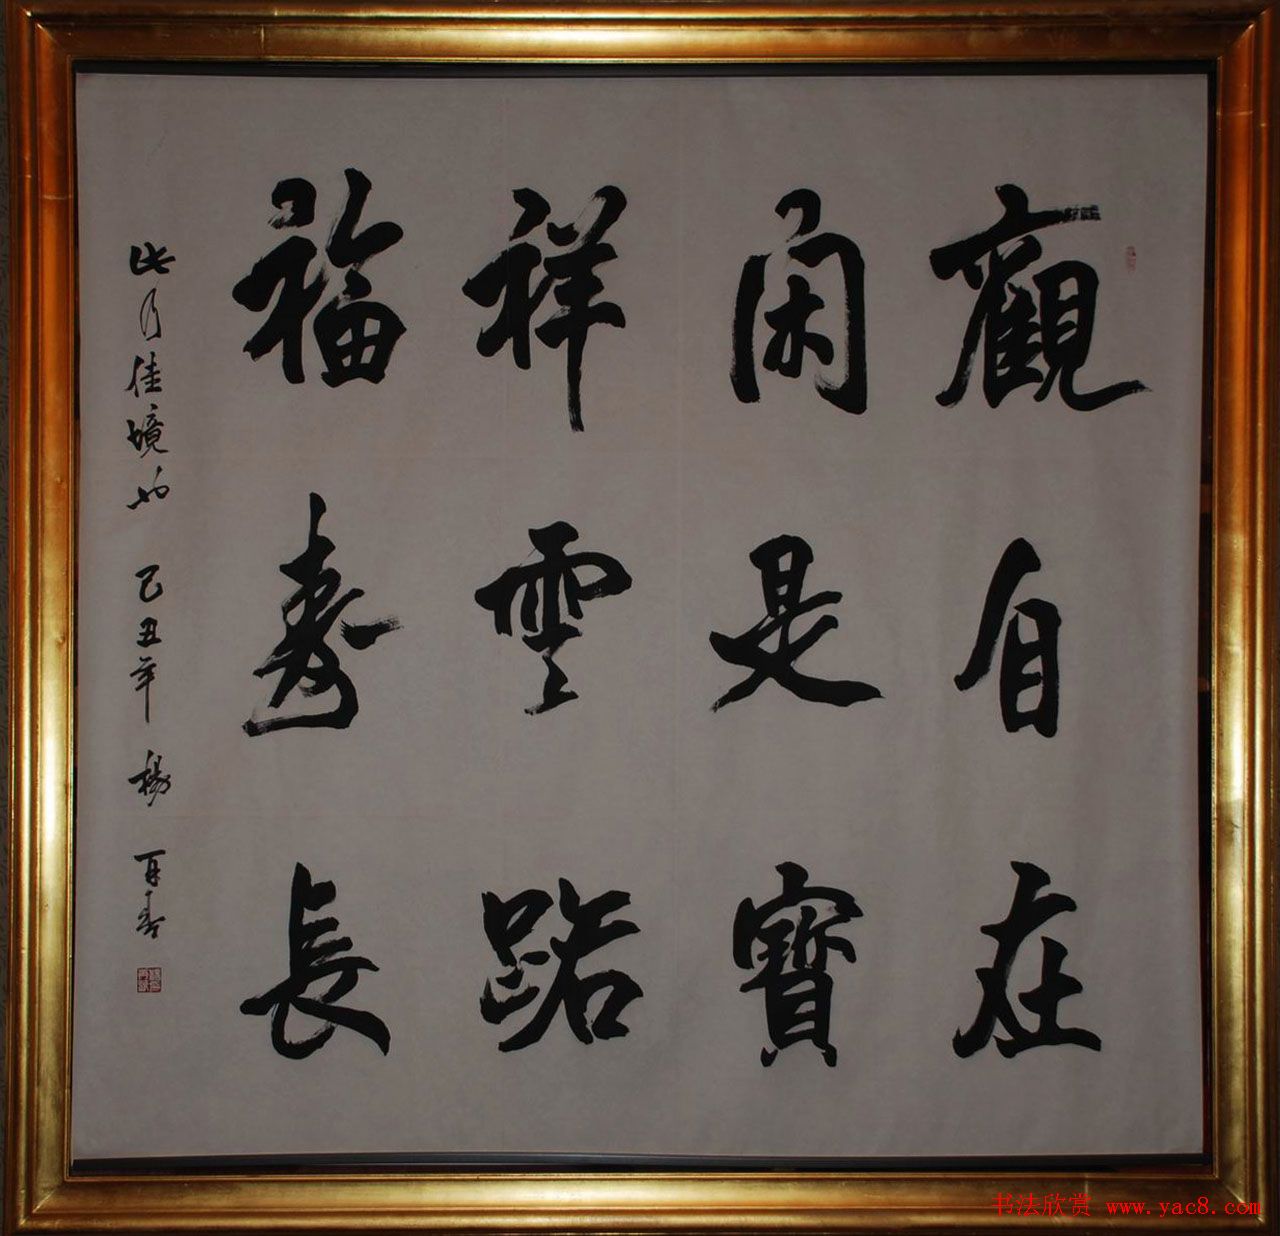 觀自在
闲是寶
祥雲路
福壽長
此乃佳境也 己丑年 楊再春
书法欣赏 www.yac8.com